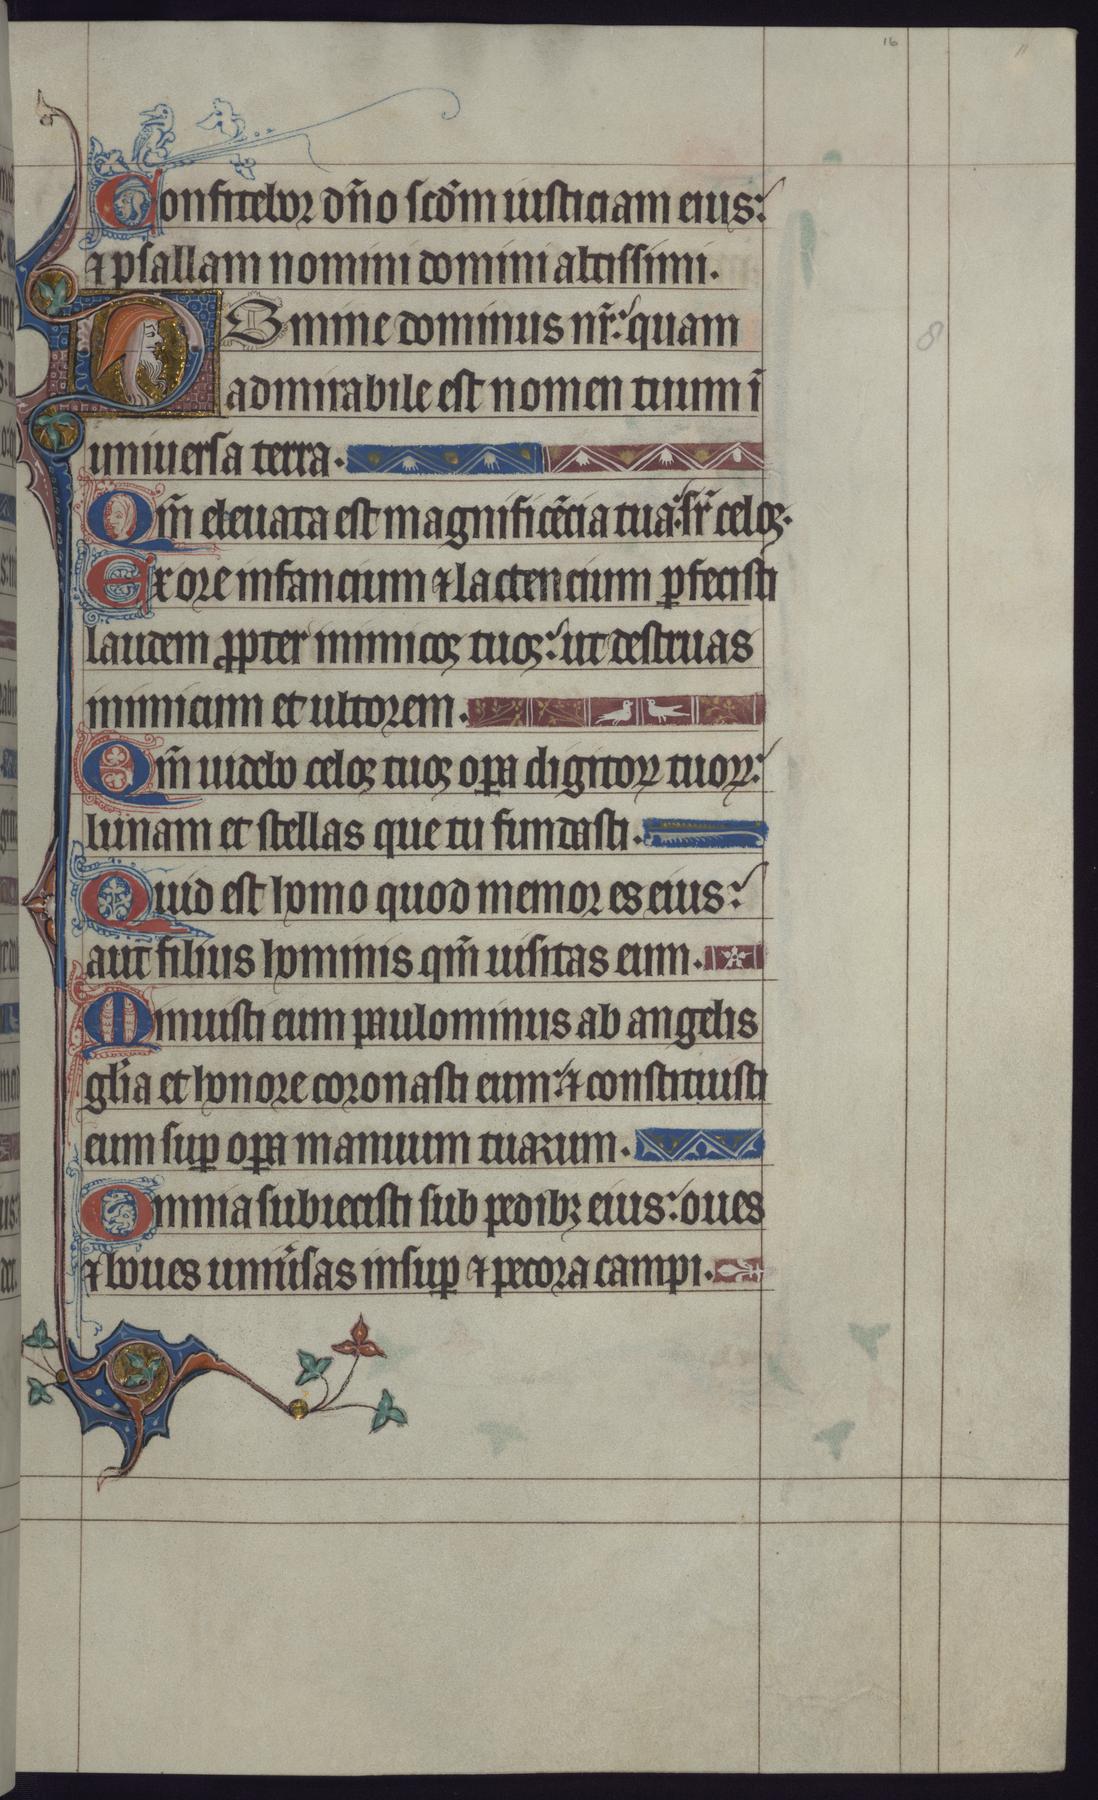 16
Confitebor dn̄o scd̄m iusticiam eius:
⁊ psallam nomini domini altissimi.
Domine dominus nr̄: quam
8
admirabile est nomen tuum ī
uniuersa terra.
Qm̄ eleuata est magnificēcia tua: sr̄ celoꝝ.
Ex ore infancium ⁊ lactencium ꝑfecisti
laudem ꝓpter inimicos tuos: ut destruas
inimicum et ultorem.
Qm̄ uidebo celos tuos oꝑa digitoꝝ tuoꝝ:
lunam et stellas que tu fundasti.
Quid est homo quod memor es eius:
aut filius hominis qm̄ uisitas eum.
Minuisti eum paulominus ab angelis
gl̄ia et honore coronasti eum: ⁊ constituisti
eum suꝑ oꝑa manuum tuarum.
Omnia subiecisti sub pedibꝫ eius: oues
⁊ boues uniu̓sas insuꝑ ⁊ pecora campi.